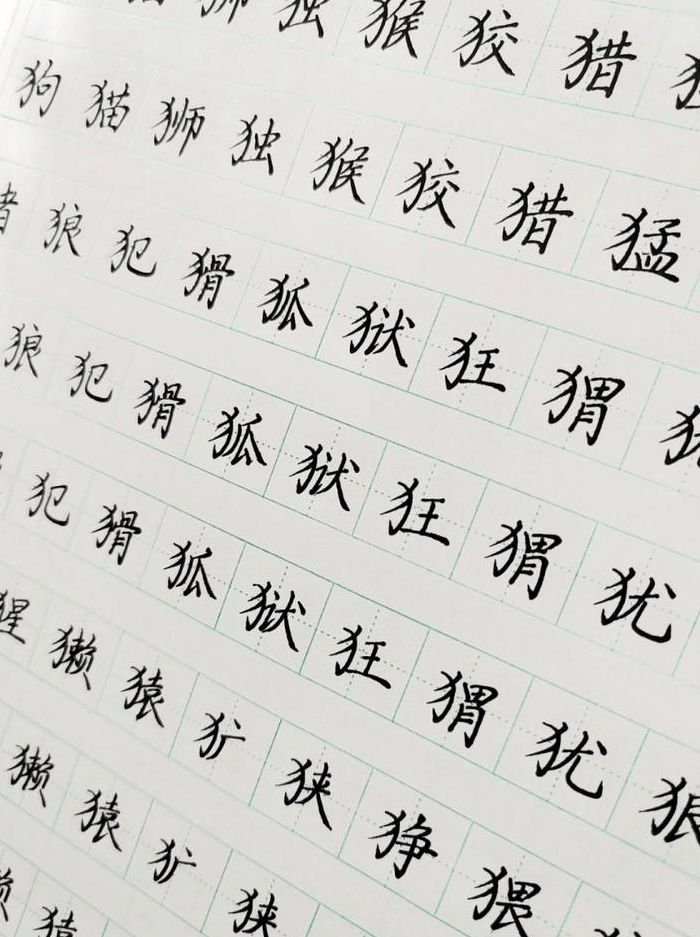 猫 狮 独 猴 狡 猎
狗 猫 狮 独 猴 狡 猎 猛
狼 犯 猾 狐 狱 狂 猬
狼 犯 猾 狐 狱 狂 猬 犹
犯 猾 狐 狱 狂 猬 犹 狠
猩 獭 猿 犷 狭 狰 猥
獭 猿 犷 狭
猿